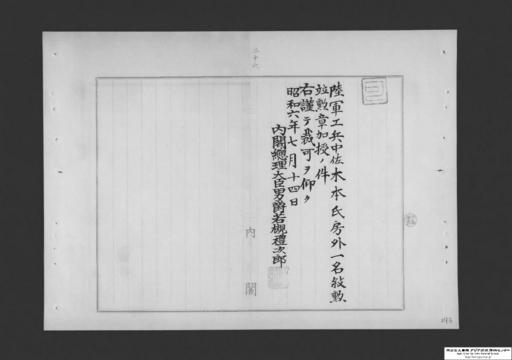 陸軍工兵中佐木本氏房外一名敍勲
竝勲章加授ノ件
右謹テ裁可ヲ仰ク
昭和六年七月十四日
内閣總理大臣男爵若槻禮次郎
内閣